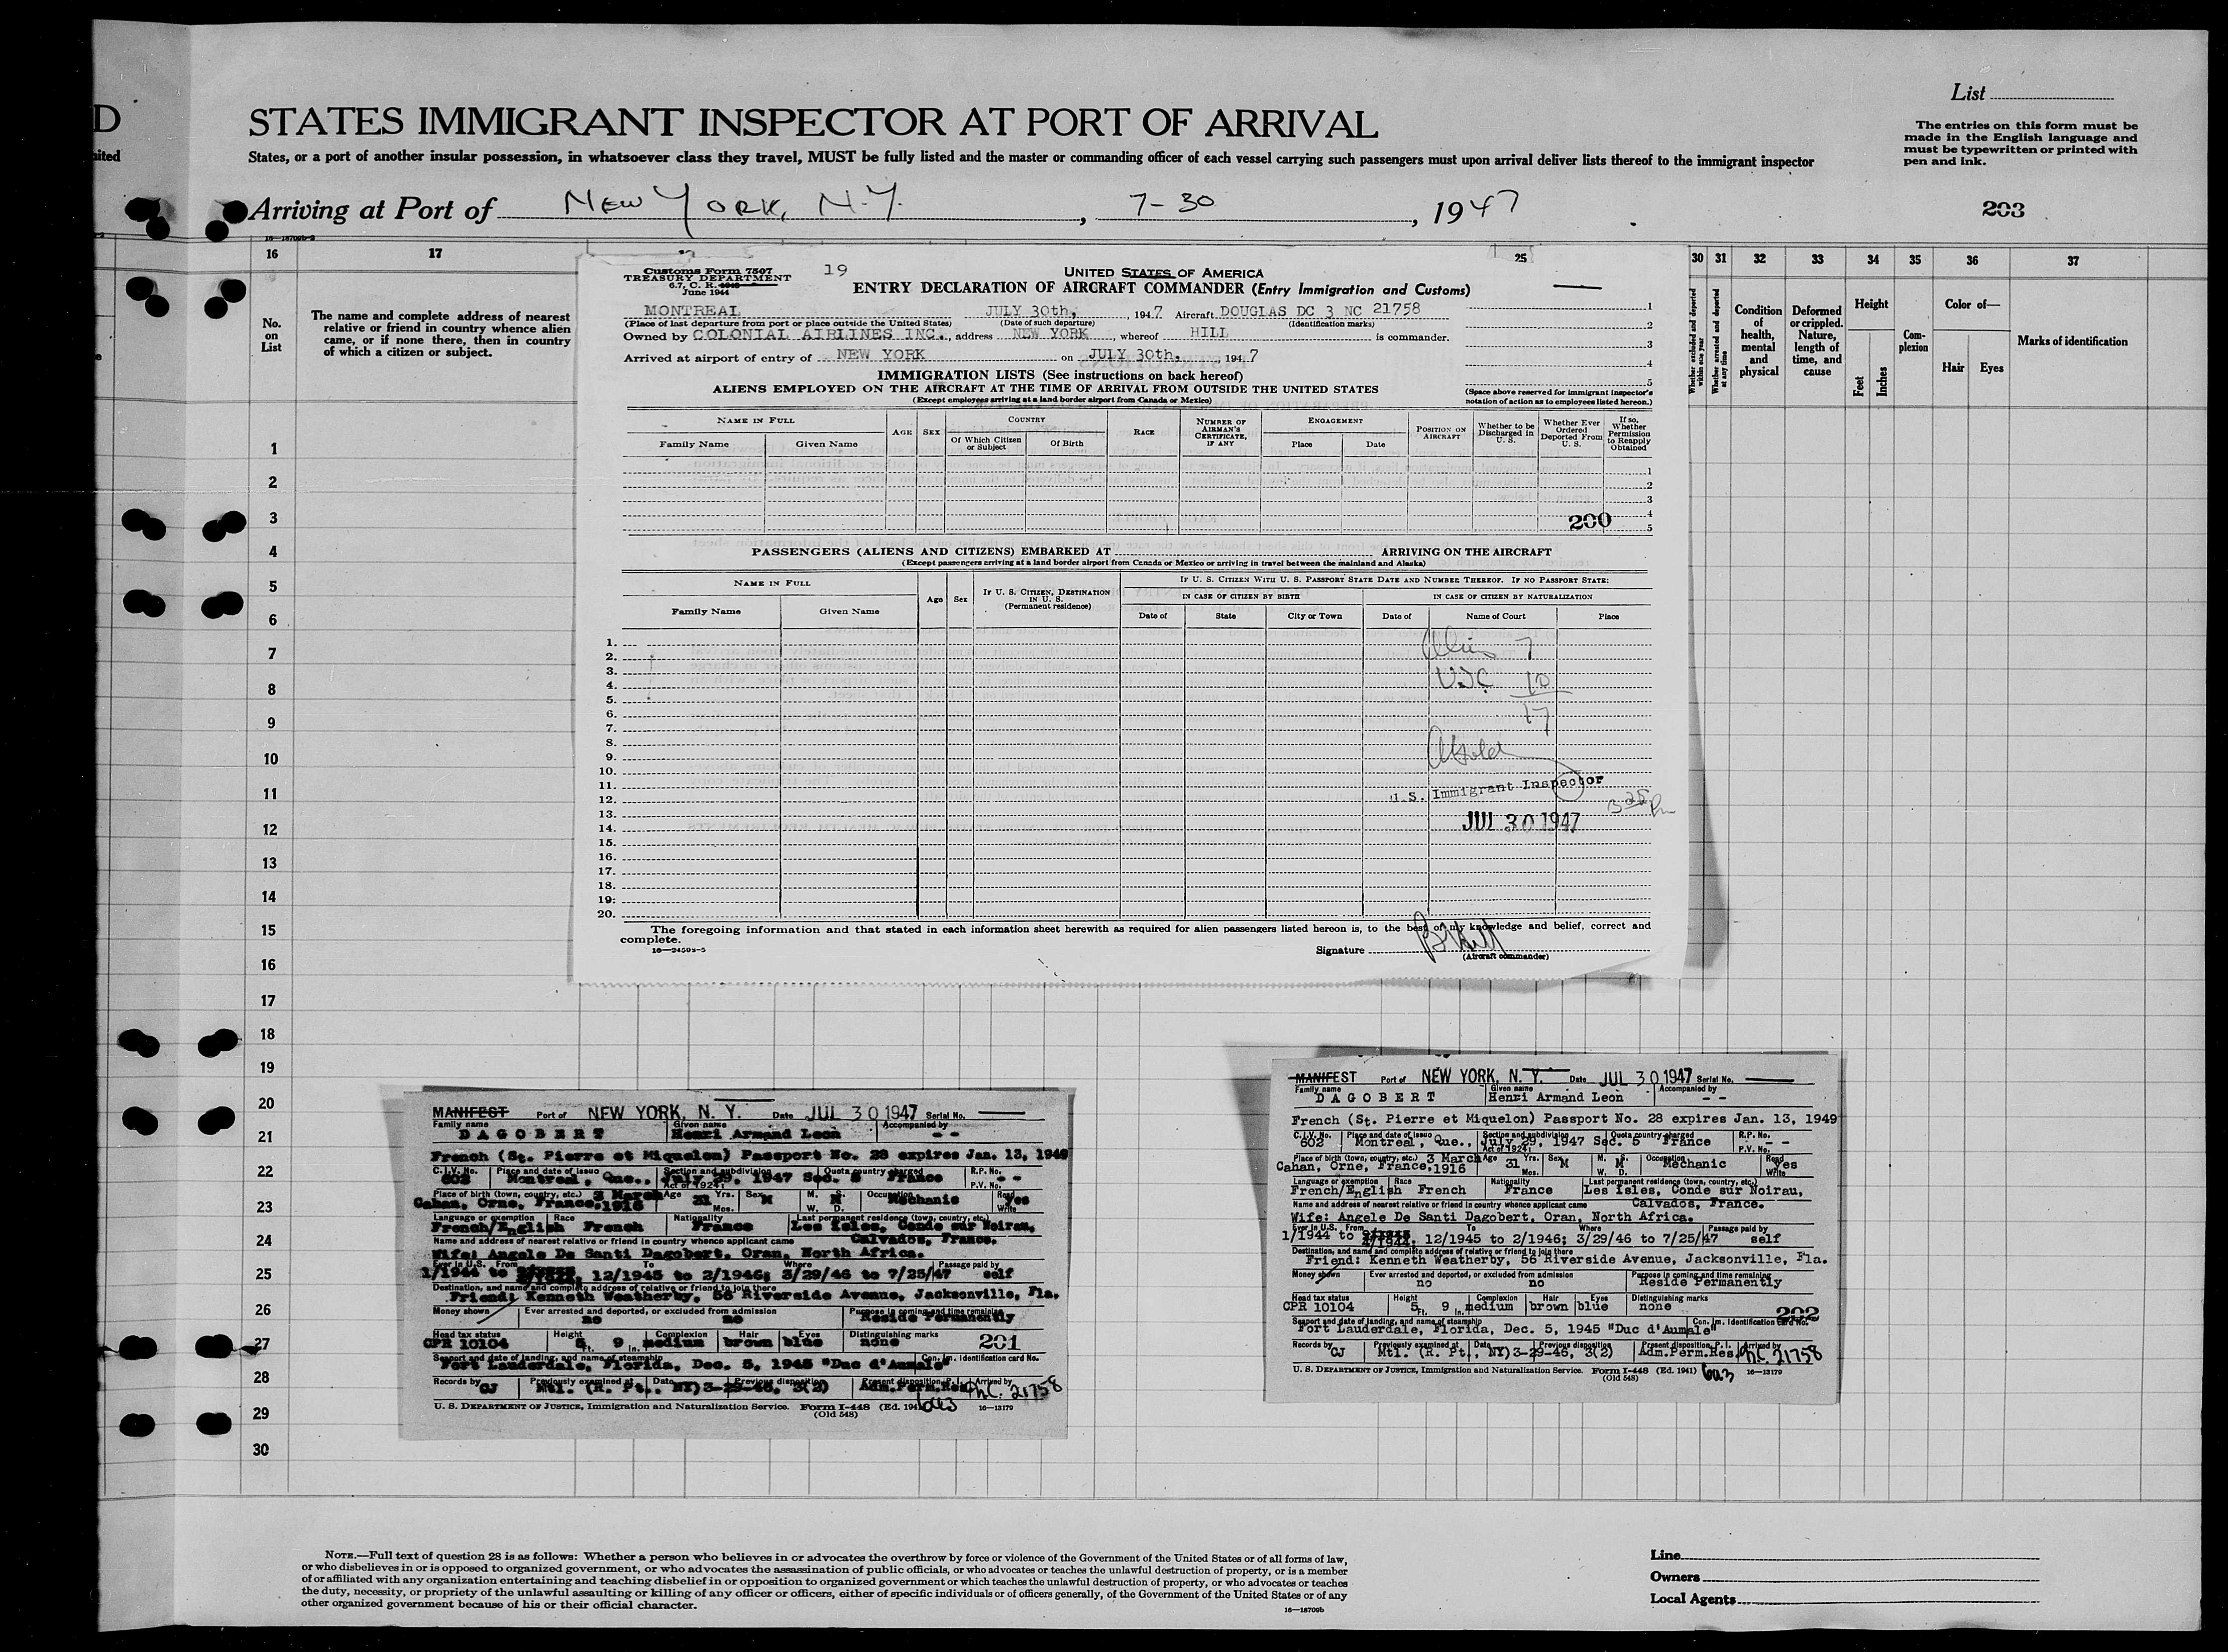 D
STATES IMMIGRANT INSPECTOR AT PORT OF ARRIVAL
List
The entries on this form must be
made in the English language and
must be typewritten or printed with
pen and ink.
nited
States, or a port of another insular possession, in whatsoever class they travel, MUST be fully listed and the master or commanding officer of each vessel carrying such passengers must upon arrival deliver lists thereof to the immigrant inspector
Arriving at Port of NEW YORK, N.Y., 7-30, 1947
203
16—18709b-2
16 17 25 30 31 32 33 34 35 36 37
No.
on
List
The name and complete address of nearest
relative or friend in country whence alien
came, or if none there, then in country
of which a citizen or subject.
Whether excluded and deported within one year
Whether arrested and deported at any time
Condition
of
health,
mental
and
physical
Deformed
or crippled.
Nature,
length of
time, and
cause
Height
Feet
Inches
Com-
plexion
Color of—
Hair Eyes
Marks of identification
1
2
3
4
5
6
7
8
9
10
11
12
13
14
15
16
17
18
19
20
21
22
23
24
25
26
27
28
29
30
Customs Form 7507
TREASURY DEPARTMENT
6.7, C. R.
June 1944
19
UNITED STATES OF AMERICA
ENTRY DECLARATION OF AIRCRAFT COMMANDER (Entry Immigration and Customs)
MONTREAL JULY 30th, 1947 Aircraft DOUGLAS DC 3 NC 21758
(Place of last departure from port or place outside the United States) (Date of such departure) (Identification marks)
Owned by COLONIAL AIRLINES INC., address NEW YORK, whereof HILL is commander.
Arrived at airport of entry of NEW YORK on JULY 30th, 1947
1
2
3
4
5
(Space above reserved for immigrant inspector's
notation of action as to employees listed hereon.)
IMMIGRATION LISTS (See instructions on back hereof)
ALIENS EMPLOYED ON THE AIRCRAFT AT THE TIME OF ARRIVAL FROM OUTSIDE THE UNITED STATES
(Except employees arriving at a land border airport from Canada or Mexico)
NAME IN FULL
Family Name Given Name
AGE SEX
COUNTRY
Of Which Citizen or Subject
Of Birth
RACE
NUMBER OF AIRMAN'S CERTIFICATE, IF ANY
ENGAGEMENT
Place Date
POSITION ON AIRCRAFT
Whether to be Discharged in U. S.
Whether Ever Ordered Deported From U. S.
If so, Whether Permission to Reapply Obtained
1
2
3
4
5
200
PASSENGERS (ALIENS AND CITIZENS) EMBARKED AT ARRIVING ON THE AIRCRAFT
(Except passengers arriving at a land border airport from Canada or Mexico or arriving in travel between the mainland and Alaska)
NAME IN FULL
Family Name Given Name
Age Sex
IF U. S. CITIZEN, DESTINATION
IN U. S.
(Permanent residence)
IF U. S. CITIZEN WITH U. S. PASSPORT STATE DATE AND NUMBER THEREOF. IF NO PASSPORT STATE:
IN CASE OF CITIZEN BY BIRTH IN CASE OF CITIZEN BY NATURALIZATION
Date of State City or Town Date of Name of Court Place
1.
2.
3.
4.
5.
6.
7.
8.
9.
10.
11.
12.
13.
14.
15.
16.
17.
18.
19.
20.
Alien 7
USC 10
17
U.S. Immigrant Inspector
JUL 30 1947
The foregoing information and that stated in each information sheet herewith as required for alien passengers listed hereon is, to the best of my knowledge and belief, correct and
complete.
16—24502-5
Signature
(Aircraft commander)
MANIFEST Port of NEW YORK, N. Y. Date JUL 30 1947 Serial No.
Family name Given name Accompanied by
DAGOBERT Henri Armand Leon - -
French (St. Pierre et Miquelon) Passport No. 28 expires Jan. 13, 1949
C.I.V. No. Place and date of issue Section and subdivision Act of 1924 Quota country charged R.P. No. P.V. No.
602 Montreal, Que., July 29, 1947 Sec. 5 France - -
Place of birth (town, country, etc.) Age Yrs. Mos. Sex M. S. W. D. Occupation Read Write
Cahan, Orne, France, 3 March 1916 31 M M Mechanic Yes
Language or exemption Race Nationality Last permanent residence (town, country, etc.)
French/English French France Les Isles, Conde sur Noirau,
Name and address of nearest relative or friend in country whence applicant came
Calvados, France.
Wife: Angele De Santi Dagobert, Oran, North Africa.
Ever in U.S. From To Where Passage paid by
1/1944 to 12/1945 to 2/1946; 3/29/46 to 7/25/47 self
Destination, and name and complete address of relative or friend to join there
Friend: Kenneth Weatherby, 56 Riverside Avenue, Jacksonville, Fla.
Money shown Ever arrested and deported, or excluded from admission Purpose in coming and time remaining
no no Reside Permanently
Head tax status Height Complexion Hair Eyes Distinguishing marks
CPR 10104 5 Ft. 9 In. medium brown blue none
201
Seaport and date of landing, and name of steamship Con. Im. Identification card No.
Fort Lauderdale, Florida, Dec. 5, 1945 "Duc d'Aumale"
Records by Previously examined at Date Previous disposition Present disposition, P. I. Arrived by
GJ Mtl. (R. Pt., NY) 3-29-46, 3(2) Adm.Perm.Res. N.C. 21758
U. S. DEPARTMENT OF JUSTICE, Immigration and Naturalization Service. Form I-448 (Ed. 1941)
(Old 548)
16—13179
MANIFEST Port of NEW YORK, N. Y. Date JUL 30 1947 Serial No.
Family name Given name Accompanied by
DAGOBERT Henri Armand Leon - -
French (St. Pierre et Miquelon) Passport No. 28 expires Jan. 13, 1949
C.I.V. No. Place and date of issue Section and subdivision Act of 1924 Quota country charged R.P. No. P.V. No.
602 Montreal, Que., July 29, 1947 Sec. 5 France - -
Place of birth (town, country, etc.) Age Yrs. Mos. Sex M. S. W. D. Occupation Read Write
Cahan, Orne, France, 3 March 1916 31 M M Mechanic Yes
Language or exemption Race Nationality Last permanent residence (town, country, etc.)
French/English French France Les Isles, Conde sur Noirau,
Name and address of nearest relative or friend in country whence applicant came
Calvados, France.
Wife: Angele De Santi Dagobert, Oran, North Africa.
Ever in U.S. From To Where Passage paid by
1/1944 to 12/1945 to 2/1946; 3/29/46 to 7/25/47 self
Destination, and name and complete address of relative or friend to join there
Friend: Kenneth Weatherby, 56 Riverside Avenue, Jacksonville, Fla.
Money shown Ever arrested and deported, or excluded from admission Purpose in coming and time remaining
no no Reside Permanently
Head tax status Height Complexion Hair Eyes Distinguishing marks
CPR 10104 5 Ft. 9 In. medium brown blue none
202
Seaport and date of landing, and name of steamship Con. Im. Identification card No.
Fort Lauderdale, Florida, Dec. 5, 1945 "Duc d'Aumale"
Records by Previously examined at Date Previous disposition Present disposition, P. I. Arrived by
GJ Mtl. (R. Pt., NY) 3-29-46, 3(2) Adm.Perm.Res. N.C. 21758
U. S. DEPARTMENT OF JUSTICE, Immigration and Naturalization Service. Form I-448 (Ed. 1941)
(Old 548)
16—13179
NOTE.—Full text of question 28 is as follows: Whether a person who believes in or advocates the overthrow by force or violence of the Government of the United States or of all forms of law,
or who disbelieves in or is opposed to organized government, or who advocates the assassination of public officials, or who advocates or teaches the unlawful destruction of property, or is a member
of or affiliated with any organization entertaining and teaching disbelief in or opposition to organized government or which teaches the unlawful destruction of property, or who advocates or teaches
the duty, necessity, or propriety of the unlawful assaulting or killing of any officer or officers, either of specific individuals or of officers generally, of the Government of the United States or of any
other organized government because of his or their official character.
16—18709b
Line
Owners
Local Agents